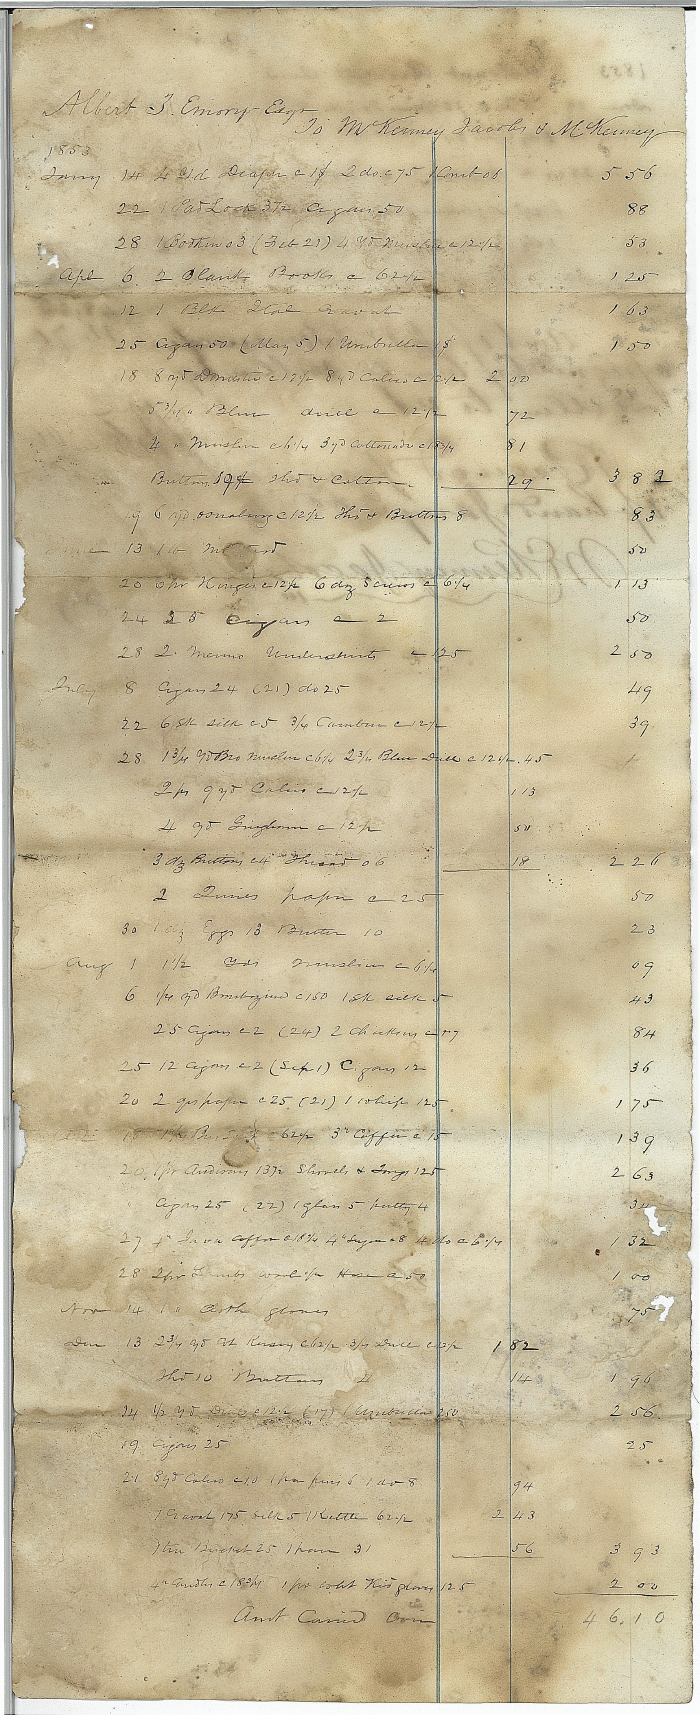 Albert T. Emory Esqr
To McKenney Jacobs & McKenney
1853
Jany 14 4 yd Diaper c 1$ 2 do c 75 1 Comb 06 5 56
22 1 Pad Lock 37½ Cigars 50 88
28 1 Bodkin 03 (Feb 21) 4 yd Muslin c 12½ 53
Apl 6 2 Blank Books c 62½ 1 25
12 1 Blk Ital Cravat 1 63
25 Cigars 50 (May 5) 1 Umbrella 1$ 1 50
18 8 yd Domestic c 12½ 8 yd Calico c 12½ 2 00
5¾ " Blue drill c 12½ 72
4 " Muslin c 6¼ 3 yd Cottonade c 18¾ 81
Buttons 19¢ Thd & Cotton 29 3 82
9 6 yd Osnaburg c 12½ Thd & Buttons 8 83
13 1 50
20 Hinges c 12½ 6 dz Screws c 6¼ 1 13
24 25 Cigars c 2 50
28 2 Merino Undershirts c 125 2 50
July 8 Cigars 24 (21) do 25 49
22 6 sk silk c 5 ¾ Cambric c 12½ 39
28 1¾ yd Bro Muslin c 6¼ 2¾ Blue Drill c 12½ .45
2 ps 9 yd Calico c 12½ 1 13
4 yd Gingham c 12½ 50
3 dz Buttons c 4 Thread 06 18 2 26
2 Quires paper c 25 50
30 1 dz Eggs 13 Butter 10 23
Aug 1 1½ Yds Muslin c 6¼ 09
6 ¼ yd Bombazine c 150 1 sk silk 5 43
25 Cigars c 2 (24) 2 Chickens c 17 84
25 12 Cigars c 2 (Sep 1) Cigars 12 36
20 2 qrs paper c 25 (21) 1 whip 125 1 75
c 62½ 3 " Coffee c 15 1 39
20 1 pr Andirons 137½ Shovels & Tongs 125 2 63
" Cigars 25 (22) 1 glass 5 putty 4 34
27 4 " Java Coffee c 18¾ 4 " Sugar c 8 4 do c 6¼ 1 32
28 2 pr Lambs wool ½ Hose c 50 1 00
Nov 14 1 " gloves 75
Dec 13 2¾ yd Kersey c 62½ ¾ Drill c 12½ 1 82
Thd 10 Buttons 4 14 1 96
24 ½ yd Drill c 12½ (17) 1 Umbrella 250 2 56
19 Cigars 25 25
21 8 yd Calico c 10 1 paper pins 6 1 do 8 94
1 Cravat 175 silk 5 1 Kettle 62½ 2 43
Bucket 25 1 31 56 3 93
4 " Candles c 18¾ 1 pr Kid gloves 125 2 00
Amt Carried Over 46.10